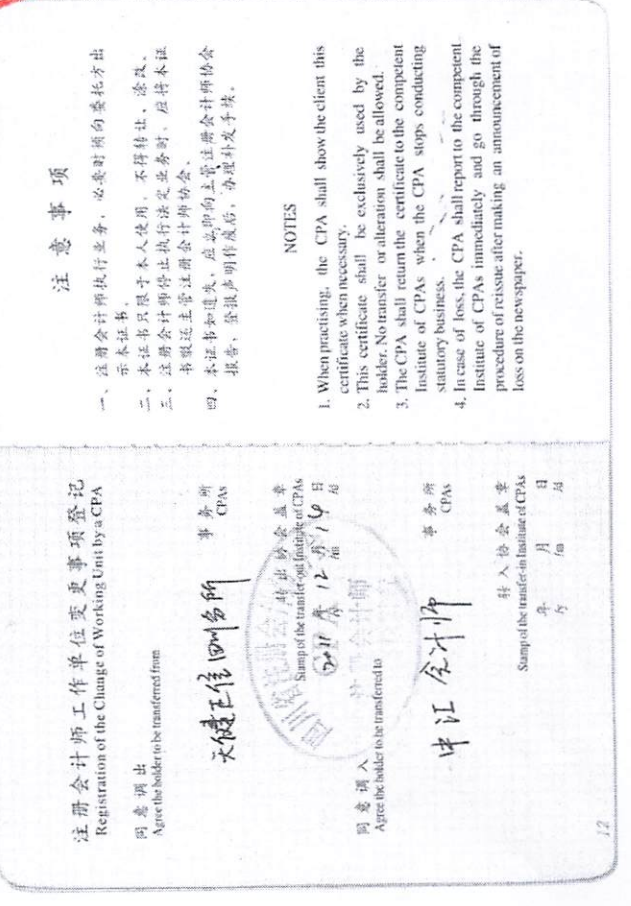 注册会计师工作单位变更事项登记
Registration of the Change of Working Unit by a CPA
同意调出
Agree the holder to be transferred from
天健正信
事务所
CPAs
转出协会盖章
Stamp of the transfer-out Institute of CPAs
2011年12月16日
/y /m /d
同意调入
Agree the holder to be transferred to
中江会计师
事务所
CPAs
转入协会盖章
Stamp of the transfer-in Institute of CPAs
年 月 日
/y /m /d
12
注意事项
一、注册会计师执行业务,必要时须向委托方出
示本证书。
二、本证书只限于本人使用,不得转让、涂改。
三、注册会计师停止执行法定业务时,应将本证
书缴还主管注册会计师协会。
四、本证书如遗失,应立即向主管注册会计师协会
报告,登报声明作废后,办理补发手续。
NOTES
1. When practising, the CPA shall show the client this
certificate when necessary.
2. This certificate shall be exclusively used by the
holder. No transfer or alteration shall be allowed.
3. The CPA shall return the certificate to the competent
Institute of CPAs when the CPA stops conducting
statutory business.
4. In case of loss, the CPA shall report to the competent
Institute of CPAs immediately and go through the
procedure of reissue after making an announcement of
loss on the newspaper.